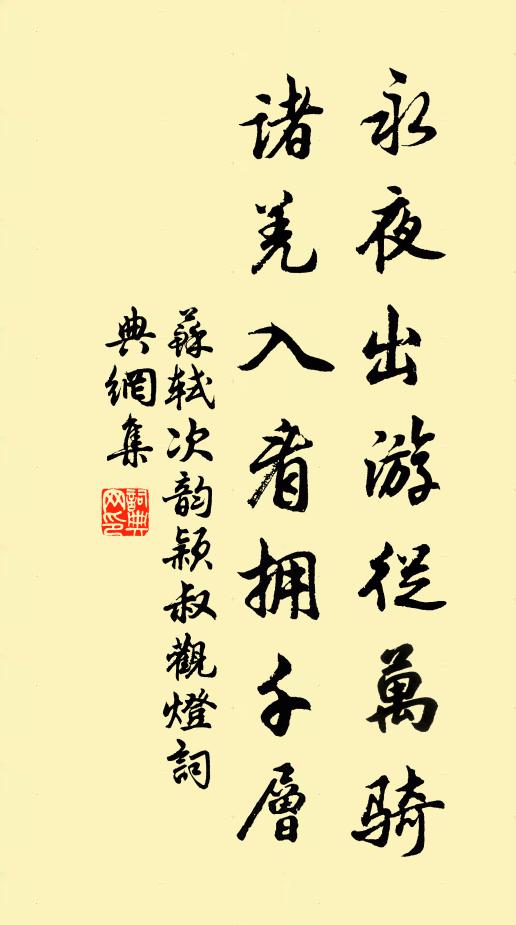 永夜出游從萬騎
諸羌入看擁千層
蘇軾次韵穎叔觀燈詞
典網集
詞典
网印